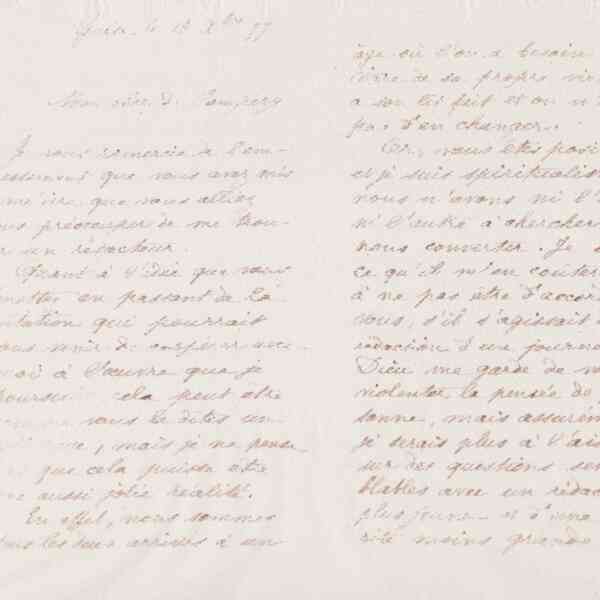 Guise, le 18 Xbre 77
Mon cher de Pompery
Je vous remercie de l'em-
pressement que vous avez mis
me dire que vous alliez
ous préoccuper de me trou-
r un rédacteur.
Quant à l'idée que vous
mettez en passant de la
ntation qui pourrait
ous venir de coopérer avec
moi à l'œuvre que je
poursuis cela peut être
comme vous le dites un
, mais je ne pense
que cela puisse être
ne aussi jolie réalité.
En effet, nous sommes
tous les deux arrivés à un
âge où l'on a besoin
vivre de sa propre vie
a son lit fait et on n'
pas d'en changer.
Or, vous êtes posi
et je suis spiritualis
nous n'avons ni l'
ni l'autre à chercher
nous convertir. Je
ce qu'il m'en coûter
à ne pas être d'accor
vous, s'il s'agissait
rédaction d'une journe
Dieu me garde de
violenter la pensée de
sonne, mais assurém
je serais plus à l'ais
sur des questions sem
blables avec un rédac
plus jeune et d'une
rité moins grande